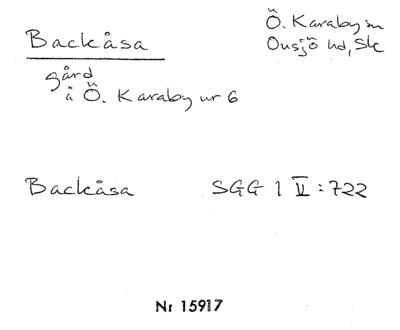 Backåsa
Ö. Karaby sn
Onsjö hd, Sk
gård
å Ö. Karaby nr 6
Backåsa SGG 1 V:722
Nr 15917